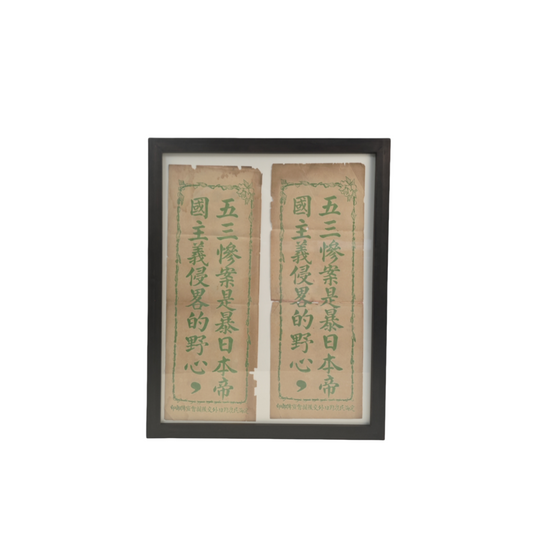 五三慘案是暴日本帝
國主義侵畧的野心，
五三慘案是暴日本帝
國主義侵畧的野心，